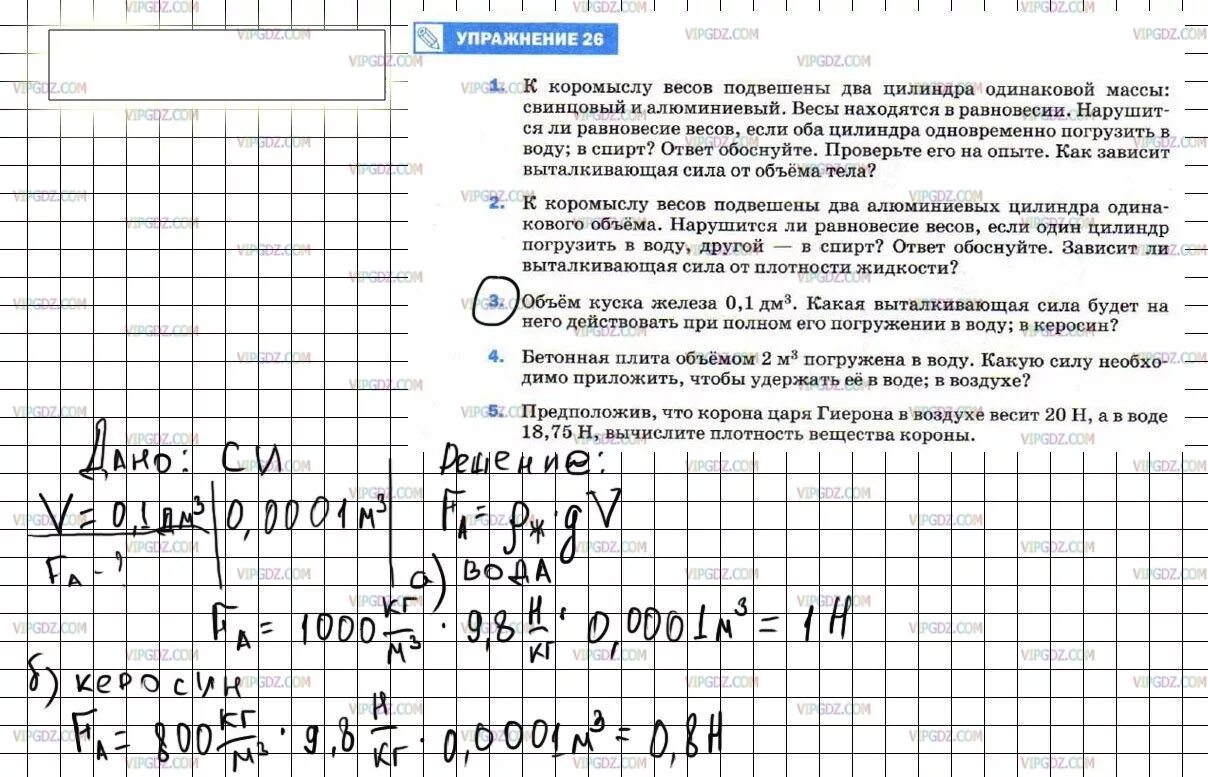 УПРАЖНЕНИЕ 26
1. К коромыслу весов подвешены два цилиндра одинаковой массы:
свинцовый и алюминиевый. Весы находятся в равновесии. Нарушит-
ся ли равновесие весов, если оба цилиндра одновременно погрузить в
воду; в спирт? Ответ обоснуйте. Проверьте его на опыте. Как зависит
выталкивающая сила от объёма тела?
2. К коромыслу весов подвешены два алюминиевых цилиндра одина-
кового объёма. Нарушится ли равновесие весов, если один цилиндр
погрузить в воду, другой — в спирт? Ответ обоснуйте. Зависит ли
выталкивающая сила от плотности жидкости?
3. Объём куска железа 0,1 дм³. Какая выталкивающая сила будет на
него действовать при полном его погружении в воду; в керосин?
4. Бетонная плита объёмом 2 м³ погружена в воду. Какую силу необхо-
димо приложить, чтобы удержать её в воде; в воздухе?
5. Предположив, что корона царя Гиерона в воздухе весит 20 Н, а в воде
18,75 Н, вычислите плотность вещества короны.
Дано: СИ Решение:
V = 0,1 дм³ 0,0001 м³ F_A = ρ_ж · g V
F_A - ?
а) вода
F_A = 1000 кг/м³ · 9,8 Н/кг · 0,0001 м³ = 1 Н
б) керосин
F_A = 800 кг/м³ · 9,8 Н/кг · 0,0001 м³ = 0,8 Н
VIPGDZ.COM